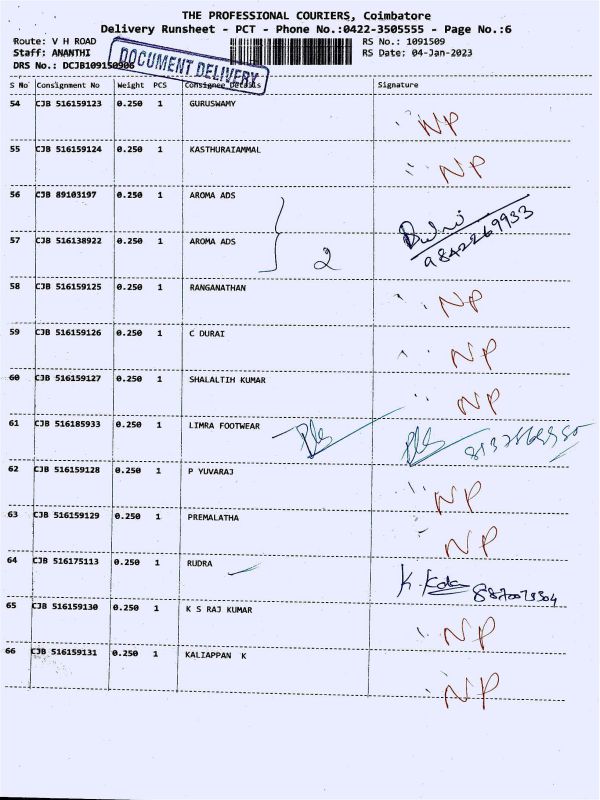 THE PROFESSIONAL COURIERS, Coimbatore
Delivery Runsheet - PCT - Phone No.:0422-3505555 - Page No.:6
Route: V H ROAD RS No.: 1091509
Staff: ANANTHI RS Date: 04-Jan-2023
DRS No.: DCJB109150906
DOCUMENT DELIVERY
S No Consignment No Weight PCS Consignee Details Signature
54 CJB 516159123 0.250 1 GURUSWAMY NP
55 CJB 516159124 0.250 1 KASTHURAIAMMAL NP
56 CJB 89103197 0.250 1 AROMA ADS
57 CJB 516138922 0.250 1 AROMA ADS 2 9842269933
58 CJB 516159125 0.250 1 RANGANATHAN NP
59 CJB 516159126 0.250 1 C DURAI NP
60 CJB 516159127 0.250 1 SHALALTIH KUMAR NP
61 CJB 516185933 0.250 1 LIMRA FOOTWEAR
62 CJB 516159128 0.250 1 P YUVARAJ NP
63 CJB 516159129 0.250 1 PREMALATHA NP
64 CJB 516175113 0.250 1 RUDRA K.
65 CJB 516159130 0.250 1 K S RAJ KUMAR NP
66 CJB 516159131 0.250 1 KALIAPPAN K NP